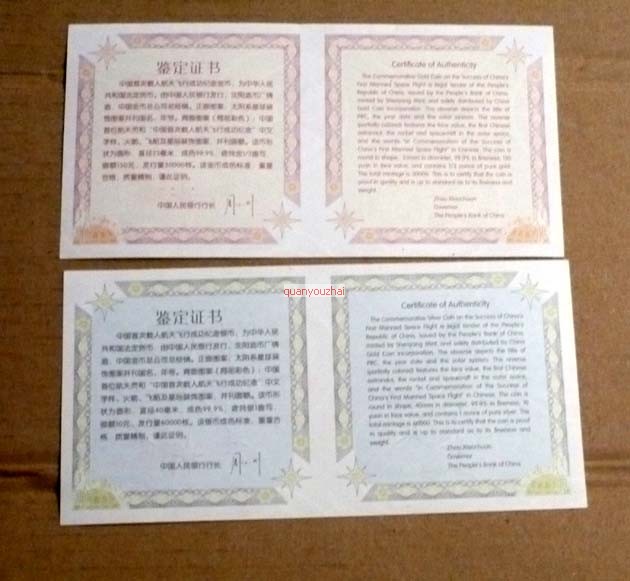 鉴定证书
中国首次载人航天飞行成功纪念金币，为中华人民
共和国法定货币，由中国人民银行发行，沈阳造币厂铸
造，中国金币总公司总经销。正面图案：太阳系星球装
饰图案并刊国名、年号。背面图案（局部彩色）：中国
首位航天员和“中国首次载人航天飞行成功纪念”中文
字样，火箭、飞船及星际装饰图案，并刊面额。该币形
状为圆形，直径23毫米，成色99.9%，含纯金1/3盎司，
面额150元，发行量30000枚。该金币成色标准，重量
合格，质量精制，谨此证明。
中国人民银行行长
Certificate of Authenticity
The Commemorative Gold Coin on the Success of China's
First Manned Space Flight is legal tender of the People's
Republic of China, issued by the People's Bank of China,
minted by Shenyang Mint and solely distributed by China
Gold Coin Incorporation. The obverse depicts the title of
PRC, the year date and the solar system. The reverse
(partially colored) features the face value, the first Chinese
astronaut, the rocket and spacecraft in the outer space,
and the words "In Commemoration of the Success of
China's First Manned Space Flight" in Chinese. The coin is
round in shape, 23mm in diameter, 99.9% in fineness, 150
yuan in face value, and contains 1/3 ounce of pure gold.
The total mintage is 30000. This is to certify that the coin is
proof in quality and is up to standard as to its fineness and
weight.
Zhou Xiaochuan
Governor
The People's Bank of China
quanyouzhai
鉴定证书
中国首次载人航天飞行成功纪念银币，为中华人民
共和国法定货币，由中国人民银行发行，沈阳造币厂铸
造，中国金币总公司总经销。正面图案：太阳系星球装
饰图案并刊国名、年号。背面图案（局部彩色）：中国
首位航天员和“中国首次载人航天飞行成功纪念”中文
字样，火箭、飞船及星际装饰图案，并刊面额。该币形
状为圆形，直径40毫米，成色99.9%，含纯银1盎司，
面额10元，发行量60000枚。该银币成色标准，重量合
格，质量精制，谨此证明。
中国人民银行行长
Certificate of Authenticity
The Commemorative Silver Coin on the Success of China's
First Manned Space Flight is legal tender of the People's
Republic of China, issued by the People's Bank of China,
minted by Shenyang Mint and solely distributed by China
Gold Coin Incorporation. The obverse depicts the title of
PRC, the year date and the solar system. The reverse
(partially colored) features the face value, the first Chinese
astronaut, the rocket and spacecraft in the outer space,
and the words "In Commemoration of the Success of
China's First Manned Space Flight" in Chinese. The coin is
round in shape, 40mm in diameter, 99.9% in fineness, 10
yuan in face value, and contains 1 ounce of pure silver. The
total mintage is 60000. This is to certify that the coin is proof
in quality and is up to standard as to its fineness and
weight.
Zhou Xiaochuan
Governor
The People's Bank of China